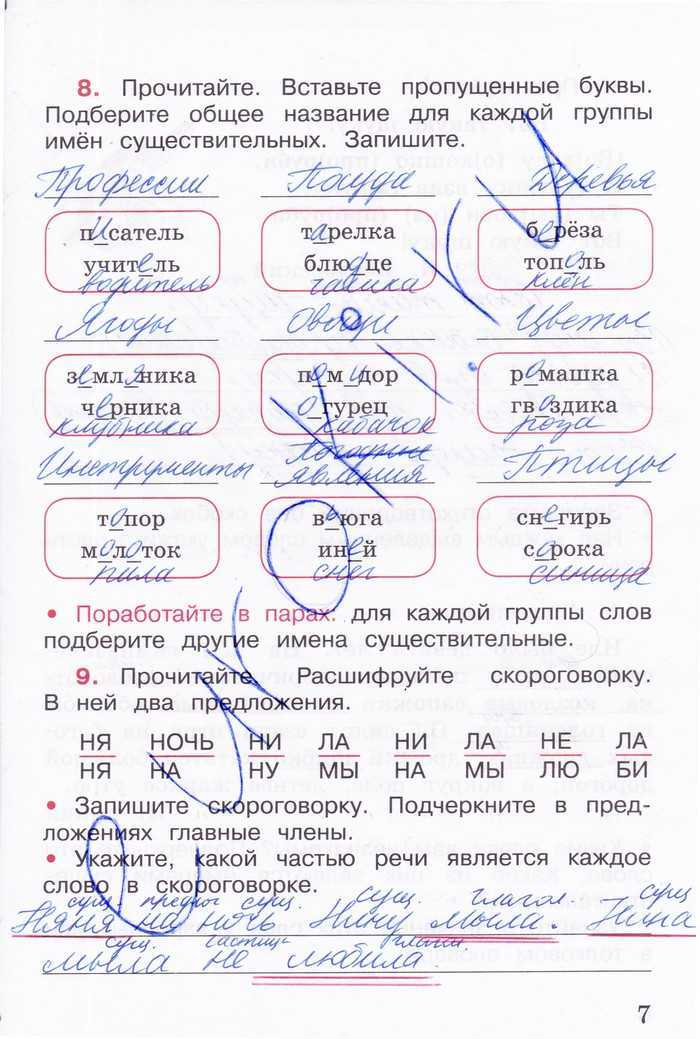 8. Прочитайте. Вставьте пропущенные буквы.
Подберите общее название для каждой группы
имён существительных. Запишите.
Профессии Посуда Деревья
писатель тарелка берёза
учитель блюдце тополь
водитель чашка клён
Ягоды Овощи Цветы
земляника помидор ромашка
черника огурец гвоздика
клубника кабачок роза
Инструменты Погодные Птицы
явления
топор вьюга снегирь
молоток иней сорока
пила снег синица
• Поработайте в парах: для каждой группы слов
подберите другие имена существительные.
9. Прочитайте. Расшифруйте скороговорку.
В ней два предложения.
НЯ НОЧЬ НИ ЛА НИ ЛА НЕ ЛА
НЯ НА НУ МЫ НА МЫ ЛЮ БИ
• Запишите скороговорку. Подчеркните в пред-
ложениях главные члены.
• Укажите, какой частью речи является каждое
слово в скороговорке.
сущ. предлог сущ. сущ. глагол. сущ
Няня на ночь Нину мыла. Нина
сущ. частица глагол.
мыла не любила.
7